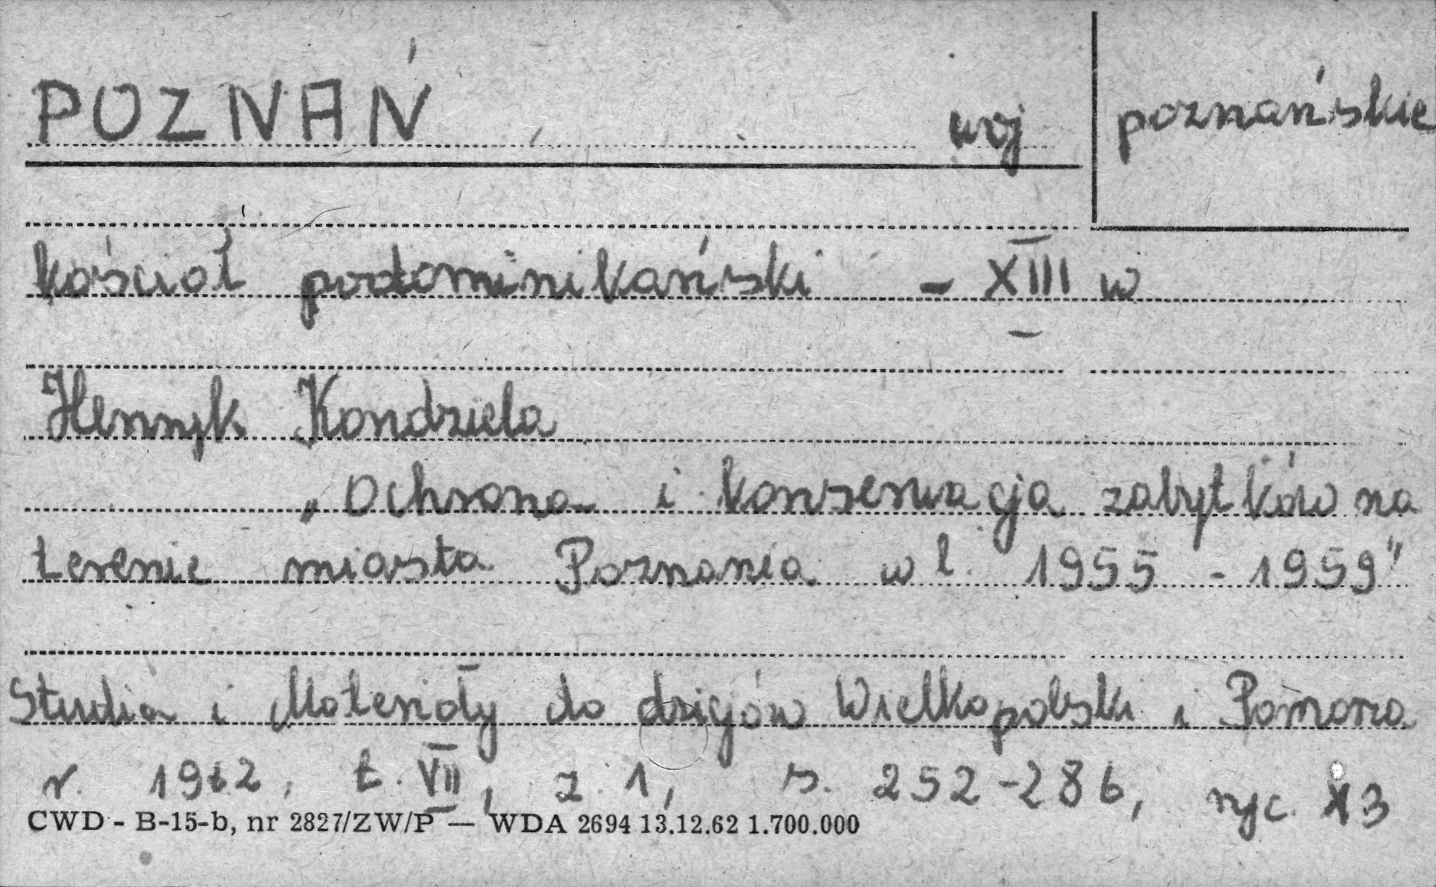 POZNAŃ woj poznańskie
kościół podominikański - XIII w
Henryk Kondziela
„Ochrona i konserwacja zabytków na
terenie miasta Poznania w l. 1955 - 1959"
Studia i Materiały do dziejów Wielkopolski i Pomorza
r. 1962, t. VII, z 1, s. 252-286, ryc. 13
CWD - B-15-b, nr 2827/ZW/P — WDA 2694 13.12.62 1.700.000